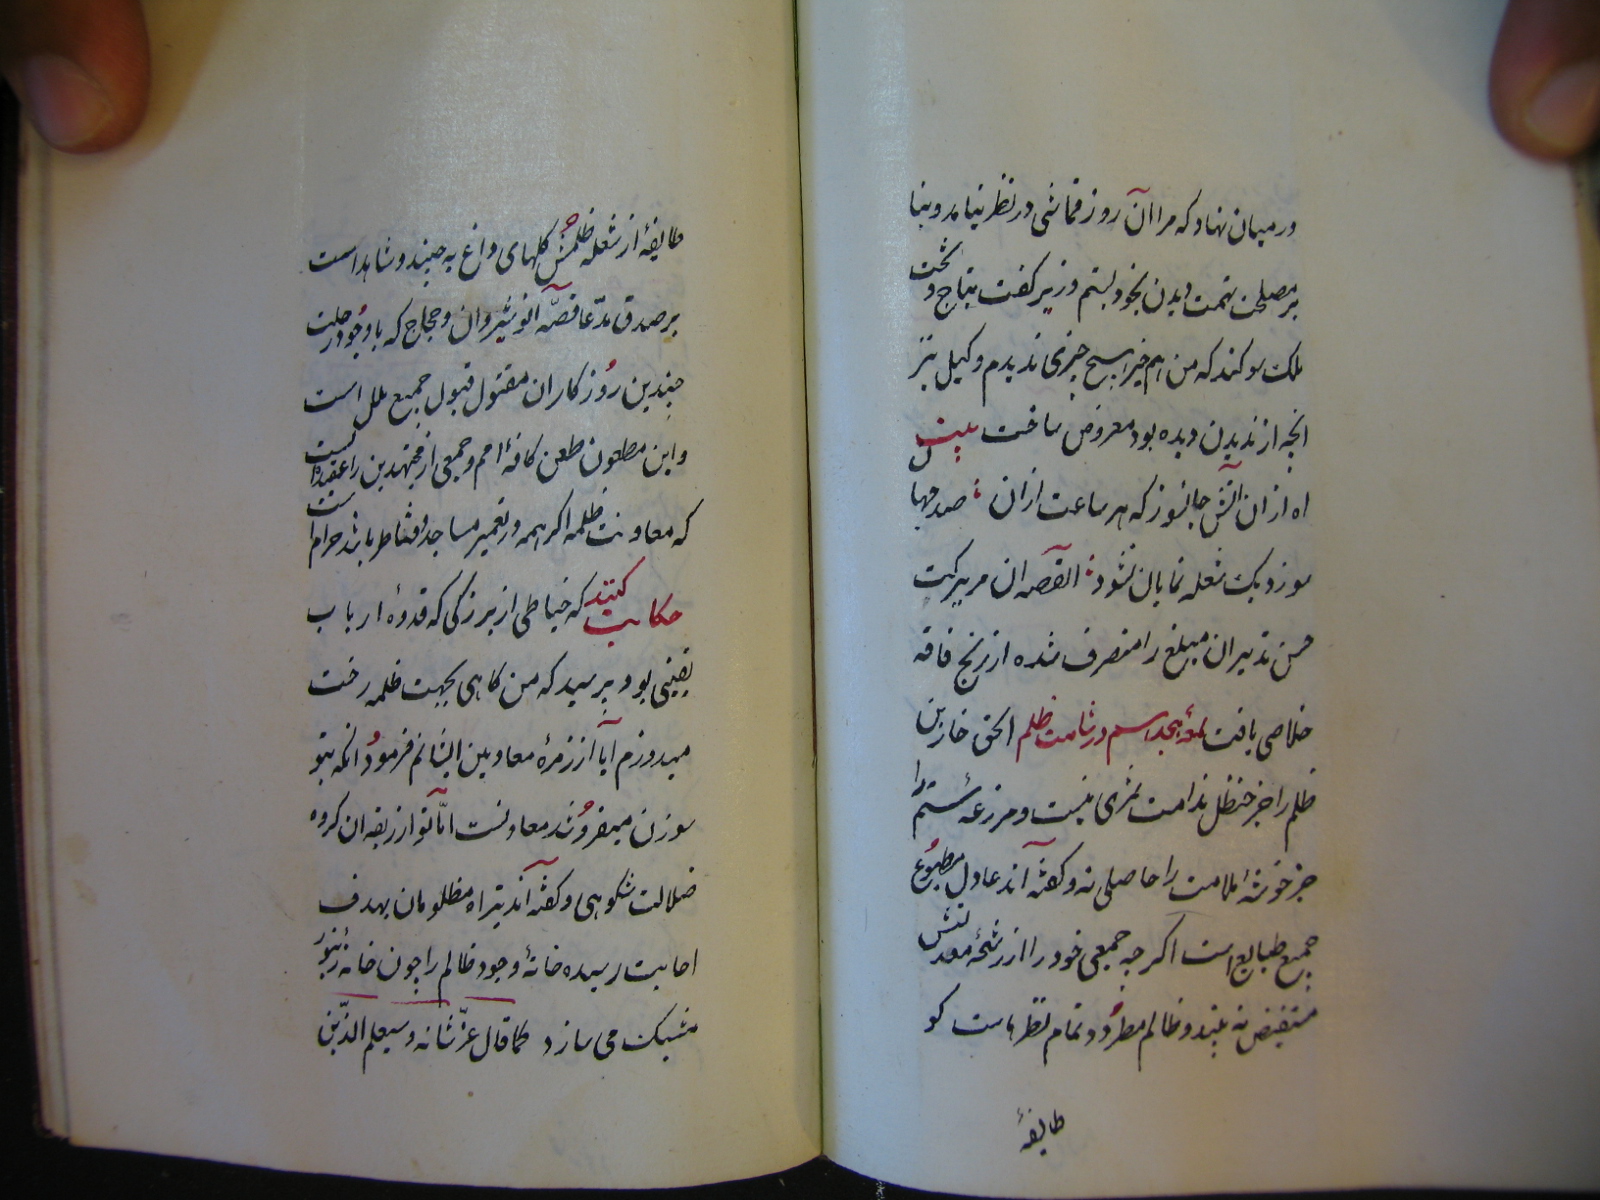 در میان نهاد که مرا آن روز قماشی در نظر نیامد و بنا
بر مصلحت تهمت دیدن بخود بستم وزیر گفت بتاج و تخت
ملک سوکند که من هم هیچ چیزی ندیدم وکیل نیز
انچه از ندیدن دیده بود معروض ساخت بیت
اه ازان آتش جانسوز که هر ساعت ازان صد
سوزد یک شعله نمایان نشود القصه ان مرد
حسن تدبیر ان مبلغ را متصرف شده از رنج فاقه
خلاصی یافت لمعهٔ در شامت ظلم الحق خاربن
ظلم را جز حنظل ندامت ثمری نیست و مزرعهٔ ستم را
جز خوشهٔ ملامت را حاصلی نه و کفته آند عادل مطبوع
جمیع طبایع است اکرچه جمعی خود را از رشحهٔ معدلتش
مستفیض نه بینند و ظالم مطرود تمام نظرهاست کو
طایفهٔ
طایفهٔ از شعله ظلمش کلهای داغ نه چینند و شاهد است
بر صدق مدّعا قصّه آنوشیروان و حجاج که باوجود رحلت
چندین روزکار ان مقبول قبول جمیع ملل است
و این مطعون طعن کافهٔ امم و جمعی از مجتهدین را عقیده است
که معاونت ظلمه اکر همه در تعمیر مساجد و قناطر باشد حرام است
حکایت کنند که خیاطی از بزرکی که قدوهٔ ارباب
یقینی بود پرسید که من کاهی بجهت ظلمه رخت
میدوزم آیا از زمرهٔ معاونین ایشانم فرمود انکه بتو
سوزن میفروشد معاونست امّا تو از ربقه ان کروه
ضلالت شکوهی و کفته آند تیر اه مظلومان بهدف
اجابت رسیده خانهٔ وجود ظالم را چون خانهٔ زنبور
مشبک می سازد کما قال عزّ شانه وسیعلم الذین